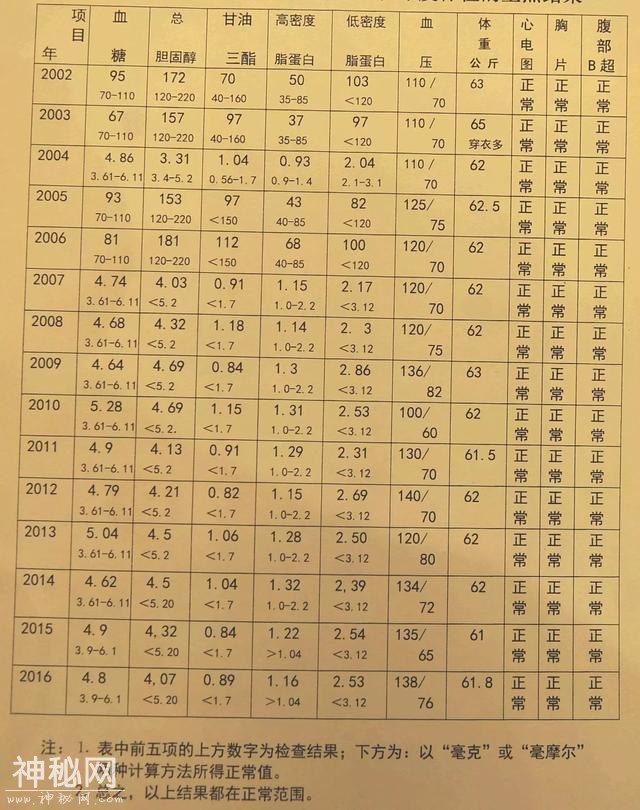 项目 血 总 甘油 高密度 低密度 血 体重 心电图 胸 腹部
年 糖 胆固醇 三酯 脂蛋白 脂蛋白 压 公斤 片 B超
2002 95 172 70 50 103 110/ 63 正 正 正
70-110 120-220 40-160 35-85 <120 70 常 常 常
2003 67 157 97 37 97 110/ 65 正 正 正
70-110 120-220 40-160 35-85 <120 70 穿衣多 常 常 常
2004 4.86 3.31 1.04 0.93 2.04 110/ 62 正 正 正
3.61-6.11 3.4-5.2 0.56-1.7 0.9-1.4 2.1-3.1 70 常 常 常
2005 93 153 97 43 82 125/ 62.5 正 正 正
70-110 120-220 <150 40-85 <120 75 常 常 常
2006 81 181 112 68 100 120/ 62 正 正 正
70-110 120-220 <150 40-85 <120 70 常 常 常
2007 4.74 4.03 0.91 1.15 2.17 120/ 62 正 正 正
3.61-6.11 <5.2 <1.7 1.0-2.2 <3.12 70 常 常 常
2008 4.68 4.32 1.18 1.14 2.3 120/ 62 正 正 正
3.61-6.11 <5.2 <1.7 1.0-2.2 <3.12 75 常 常 常
2009 4.64 4.69 0.84 1.3 2.86 136/ 63 正 正 正
3.61-6.11 <5.2 <1.7 1.0-2.2 <3.12 82 常 常 常
2010 5.28 4.69 1.15 1.31 2.53 100/ 62 正 正 正
3.61-6.11 <5.2. <1.7 1.0-2.2 <3.12 60 常 常 常
2011 4.9 4.13 0.91 1.29 2.31 130/ 61.5 正 正 正
3.61-6.11 <5.2 <1.7 1.0-2.2 <3.12 70 常 常 常
2012 4.79 4.21 0.82 1.15 2.69 140/ 62 正 正 正
3.61-6.11 <5.2 <1.7 1.0-2.2 <3.12 70 常 常 常
2013 5.04 4.5 1.06 1.28 2.50 120/ 62 正 正 正
3.61-6.11 <5.2 <1.7 1.0-2.2 <3.12 80 常 常 常
2014 4.62 4.5 1.04 1.32 2,39 134/ 62 正 正 正
3.61-6.11 <5.20 <1.7 1.0-2.2 <3.12 72 常 常 常
2015 4.9 4,32 0.84 1.22 2.54 135/ 61 正 正 正
3.9-6.1 <5.20 <1.7 >1.04 <3.12 65 常 常 常
2016 4.8 4,07 0.89 1.16 2.53 138/ 61.8 正 正 正
3.9-6.1 <5.20 <1.7 >1.04 <3.12 76 常 常 常
注：1. 表中前五项的上方数字为检查结果；下方为：以“毫克”或“毫摩尔”
种计算方法所得正常值。
总之，以上结果都在正常范围。
神秘网
www.神秘网.com